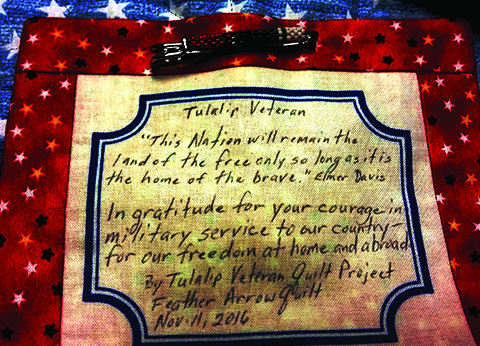 Tulalip Veteran
"This Nation will remain the
land of the free only so long as it is
the home of the brave." Elmer Davis
In gratitude for your courage in
military service to our country-
for our freedom at home and abroad
By Tulalip Veteran Quilt Project
Feather Arrow Quilt
Nov. 11, 2016